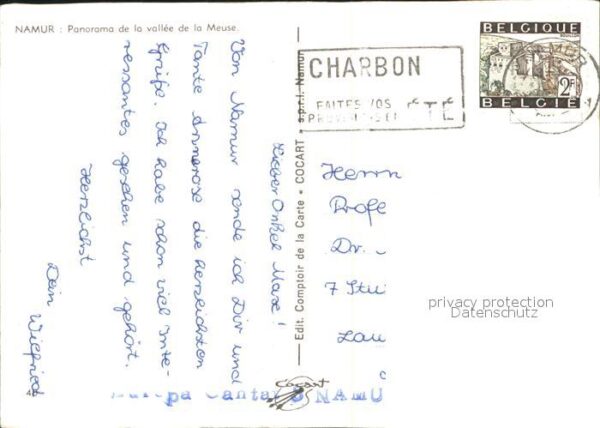 NAMUR : Panorama de la vallée de la Meuse.
Lieber Onkel Max!
Von Namur sende ich Dir und
Tante Annerose die herzlichsten
Grüße. Ich habe schon viel Inte-
ressantes gesehen und gehört.
Herzlichst
Dein Wilfried
Edit. Comptoir de la Carte • COCART • s.p.r.l. Namur
Cocart
CHARBON
FAITES VOS
ETE
BELGIQUE
BOUILLON
2F
BELGIË
Herrn
Profe
Dr.
7 Stu
Lau
privacy protection
Datenschutz
Europa Canta NAMU